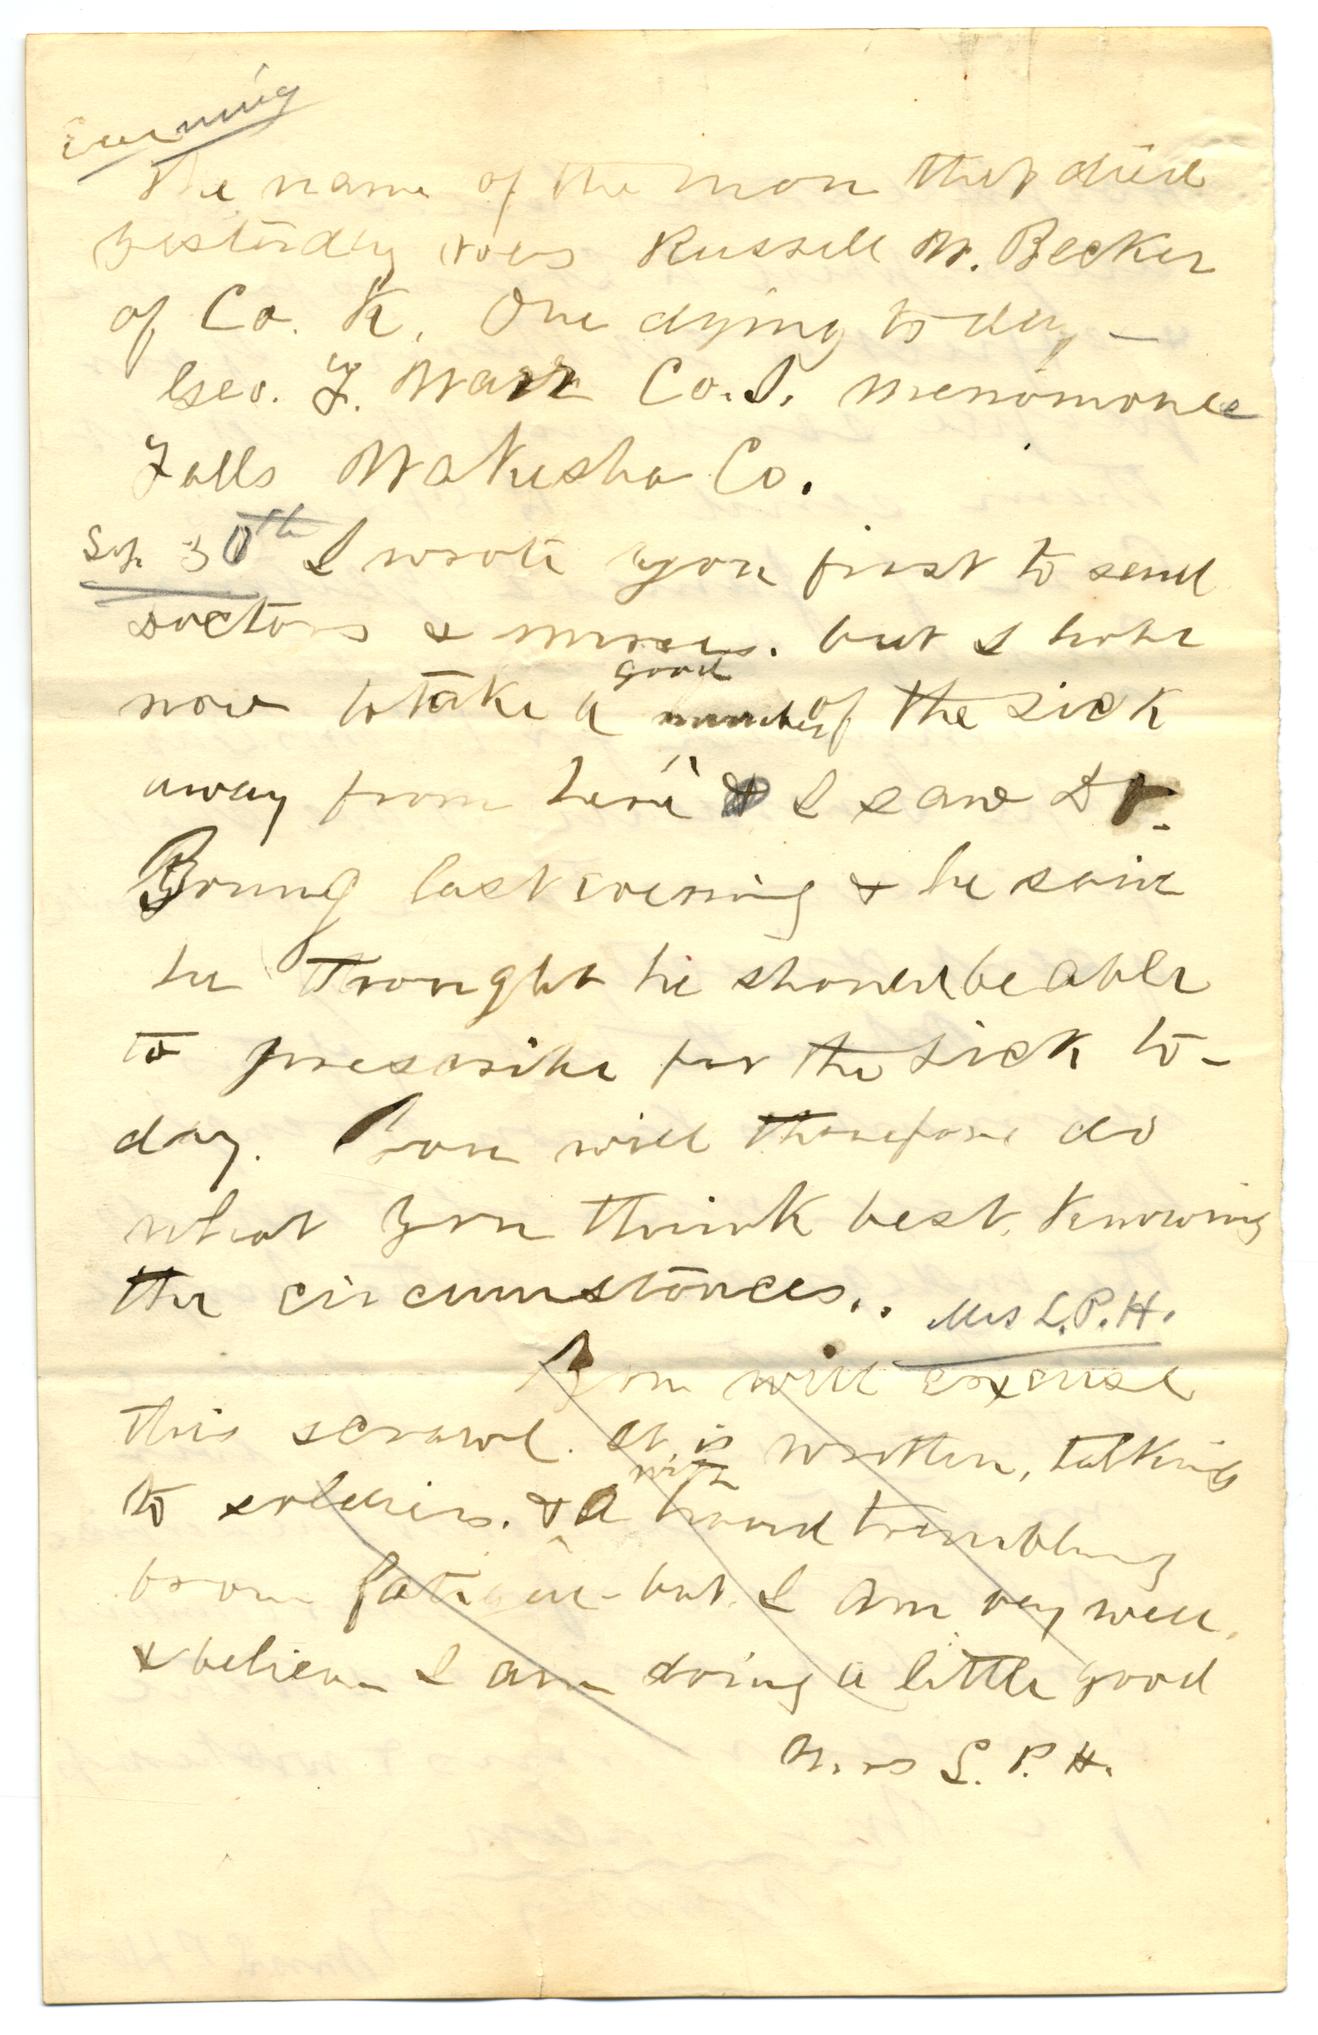 Evening
The name of the man that died
yesterday was Russell W. Becker
of Co. K. One dying to day —
Geo. F. Warr Co. I. Menomonee
Falls Wakesha Co.
Sep. 30th I wrote you first to send
doctors & nurses. but I hope
now to take a good number of the sick
away from here I saw Dr.
Young last evening & he said
he thought he should be able
to prescribe for the sick to-
day. You will therefore do
what you think best, knowing
the circumstances..
Mrs L.P.H.
You will excuse
this scrawl. It is written, talking
to soldiers. & with a hand trembling
from fatigue - but I am very well,
& believe I am doing a little good
Mrs L. P. H.